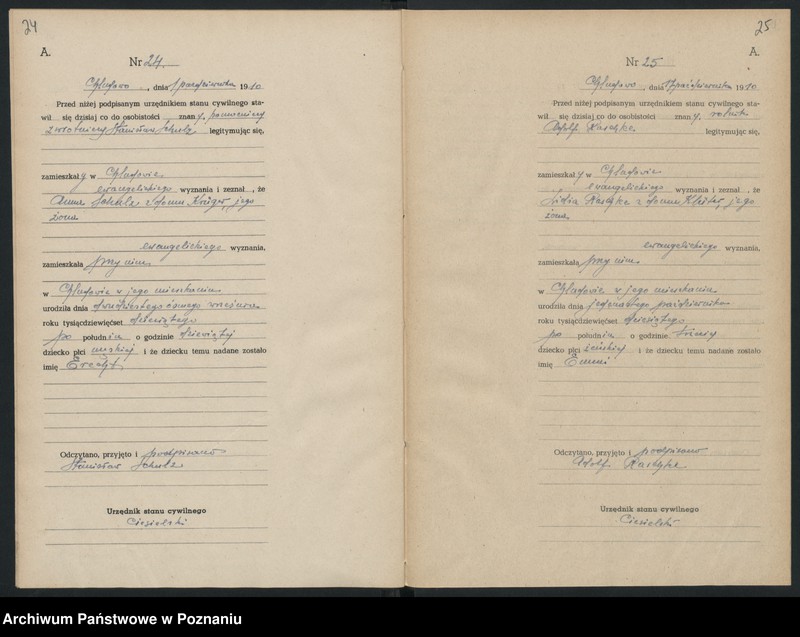 24
A.
Nr 24.
, dnia 1 października 1910
Przed niżej podpisanym urzędnikiem stanu cywilnego sta-
wił się dzisiaj co do osobistości znany, pomocniczy
zwrotniczy Stanisław Schulz legitymując się,
zamieszkały w
ewangelickiego wyznania i zeznał , że
Anna Schulz z domu Krüger, jego
żona
ewangelickiego wyznania,
zamieszkała przy nim
w w jego mieszkaniu
urodziła dnia dwudziestego ósmego września
roku tysiącdziewięćset dziesiątego
po południu o godzinie dziewiątej
dziecko płci męskiej i że dziecku temu nadane zostało
imię
Odczytano, przyjęto i podpisano
Stanisław Schulz
Urzędnik stanu cywilnego
Ciesielski
25
A.
Nr 25
, dnia października 1910
Przed niżej podpisanym urzędnikiem stanu cywilnego sta-
wił się dzisiaj co do osobistości znany, rolnik
Adolf legitymując się,
zamieszkały w
ewangelickiego wyznania i zeznał , że
z domu jego
żona
ewangelickiego wyznania,
zamieszkała przy nim
w w jego mieszkaniu
urodziła dnia jedenastego października
roku tysiącdziewięćset dziesiątego
po południu o godzinie
dziecko płci żeńskiej i że dziecku temu nadane zostało
imię Emmi
Odczytano, przyjęto i podpisano
Adolf
Urzędnik stanu cywilnego
Ciesielski
Archiwum Państwowe w Poznaniu